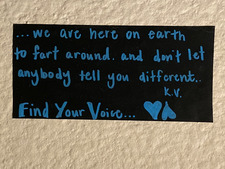 ...we are here on earth
to fart around. and don't let
anybody tell you different..
K.V.
Find Your Voice...